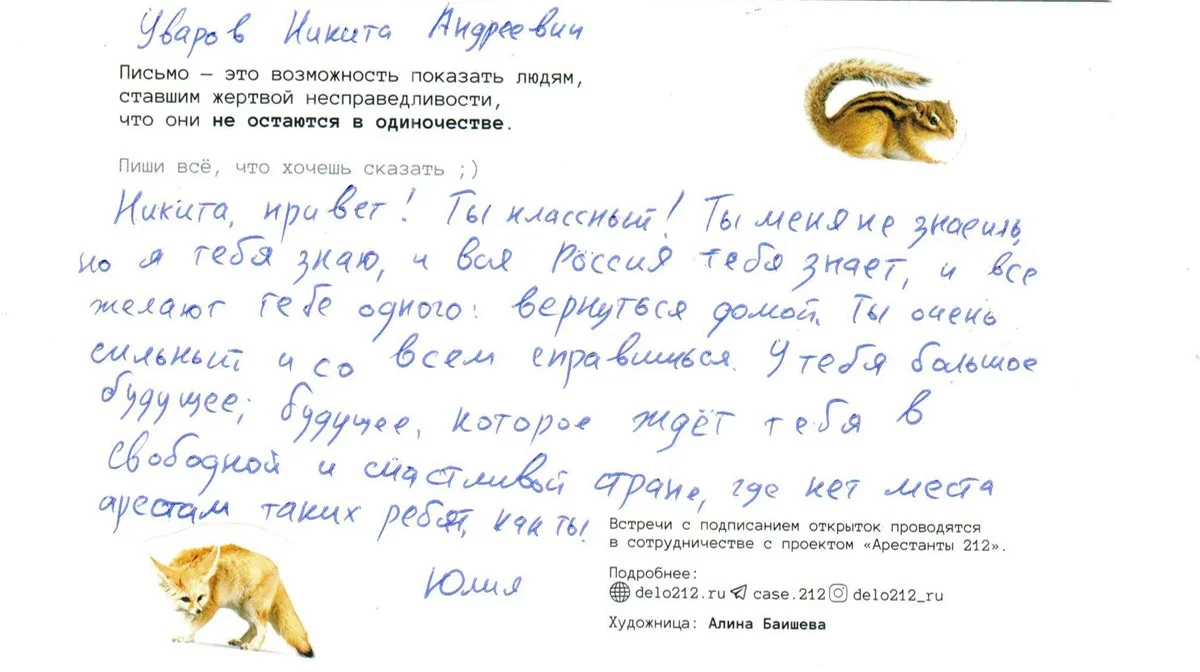 Уваров Никита Андреевич
Письмо — это возможность показать людям,
ставшим жертвой несправедливости,
что они не остаются в одиночестве.
Пиши всё, что хочешь сказать ;)
Никита, привет! Ты классный! Ты меня не знаешь,
но я тебя знаю, и вся Россия тебя знает, и все
желают тебе одного: вернуться домой. Ты очень
сильный и со всем справишься. У тебя большое
будущее; будущее, которое ждёт тебя в
свободной и счастливой стране, где нет места
арестам таких ребят, как ты!
Юлия
Встречи с подписанием открыток проводятся
в сотрудничестве с проектом «Арестанты 212».
Подробнее:
delo212.ru case.212 delo212_ru
Художница: Алина Баишева